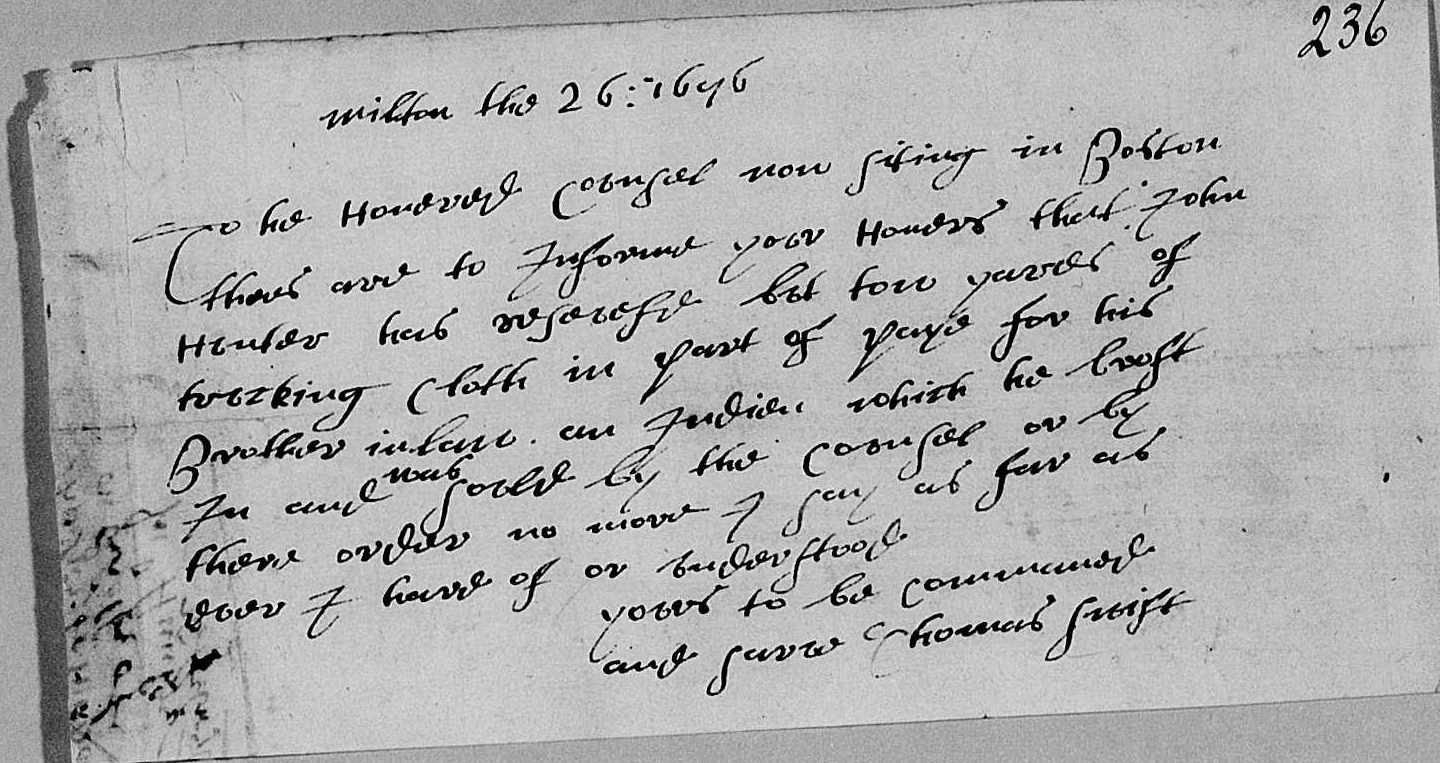 236
milton the 26: 1676
To he Honered Counsel now siting in Boston
thees are to Informe your Honers that John
Hunter has reseued but tow yardes of
trucking Cloth in part of paye for his
Brother inlaw. an Indien which he broft
In and was sould by the Counsel or by
there order no more I say as far as
euer I hard of or understood
youres to be Commaned
and sarue Thomas swift